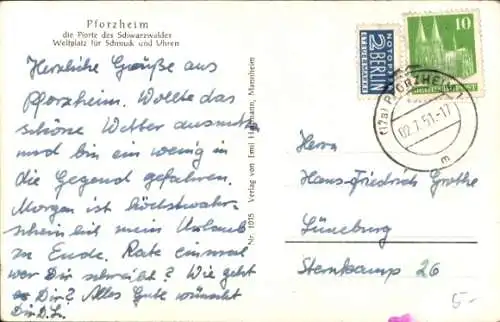 Pforzheim
die Pforte des Schwarzwaldes
Weltplatz für Schmuck und Uhren
Herzliche Grüße aus
Pforzheim. Wollte das
schöne Wetter ausnutzen
und bin ein wenig in
die Gegend gefahren.
Morgen ist höchstwahr-
scheinlich mein Urlaub
zu Ende. Rate einmal
wer Dir schreibt? Wie geht
es Dir? Alles Gute wünscht
Dir D.
Nr. 1035 Verlag von Emil Hartmann, Mannheim
NOTOPFER
2 BERLIN
STEUERMARKE
10
(17a) PFORZHEIM
02.7.51.-17
m
Herrn
Hans-Friedrich Grothe
Lüneburg
Sternkamp 26
5.-